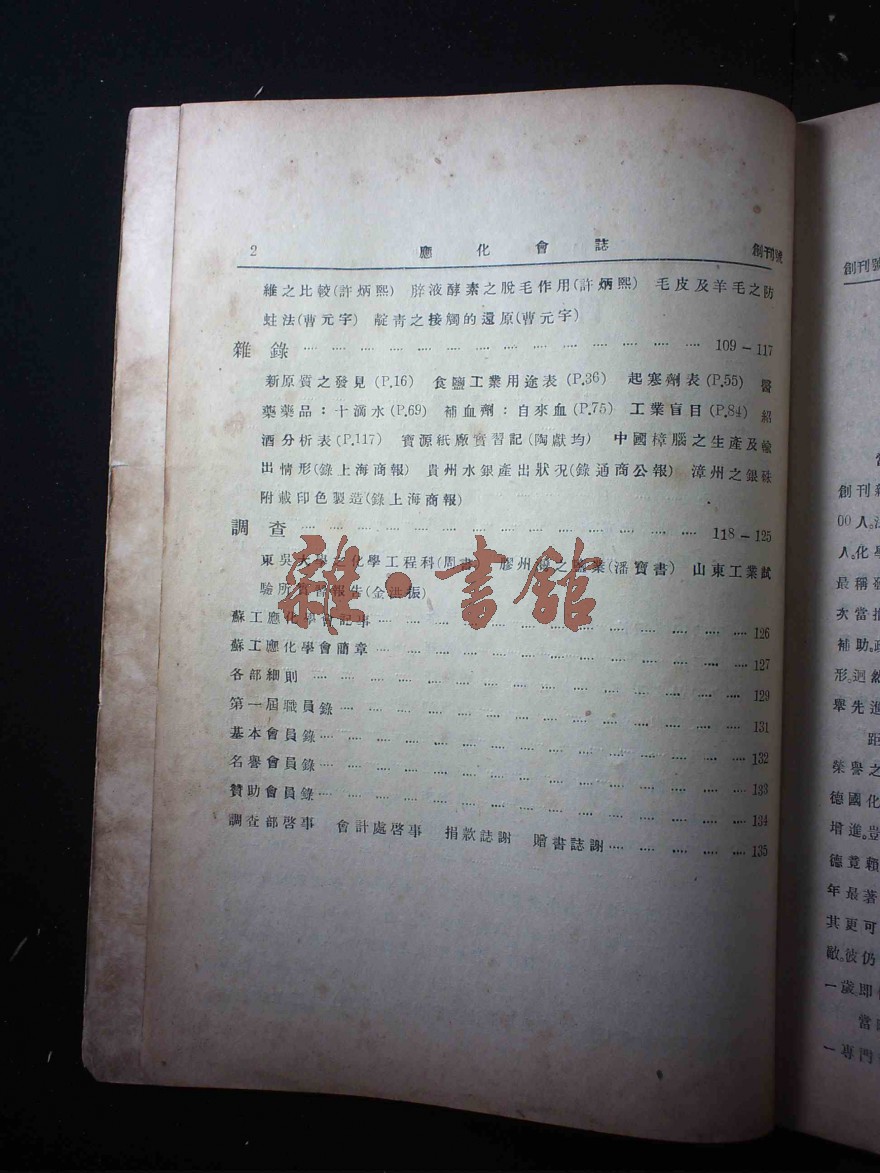 2 應化會誌 創刊號
維之比較(許炳熙) 脺液酵素之脫毛作用(許炳熙) 毛皮及羊毛之防
蛀法(曹元宇) 靛青之接觸的還原(曹元宇)
雜錄 109－117
新原質之發見(P.16) 食鹽工業用途表(P.36) 起寒劑表(P.55) 醫
藥藥品：十滴水(P.69) 補血劑：自來血(P.75) 工業盲目(P.84) 紹
酒分析表(P.117) 寶源紙廠實習記(陶獻均) 中國樟腦之生產及輸
出情形(錄上海商報) 貴州水銀產出狀況(錄通商公報) 漳州之銀硃
附載印色製造(錄上海商報)
調查 118－125
東吳大學之化學工程科(周 膠州 之 業(潘寶書) 山東工業試
驗所實習報告(金洪振)
蘇工應化學會記事 126
蘇工應化學會簡章 127
各部細則 129
第一屆職員錄 131
基本會員錄 132
名譽會員錄 133
贊助會員錄 134
調查部啓事 會計處啓事 捐款誌謝 贈書誌謝 135
雜·書館
創刊號
創刊
00人。
人。化學
最稱發
次當推
補助。
形。迥然
舉先進
距
榮譽之
德國化
增進。豈
德竟賴
年最著
其更可
敵。彼仍
一歲。即
當
一專門